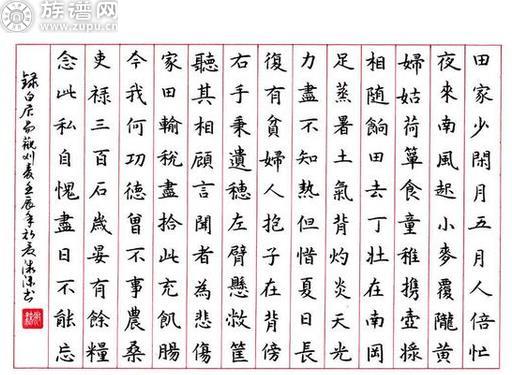 族谱网
www.zupu.cn
田家少閑月五月人倍忙
夜來南風起小麥覆隴黃
婦姑荷簞食童稚携壺漿
相隨餉田去丁壯在南岡
足蒸暑土氣背灼炎天光
力盡不知熱但惜夏日長
復有貧婦人抱子在背傍
右手秉遺穗左臂懸敝筐
聽其相顧言聞者為悲傷
家田輸稅盡拾此充飢腸
今我何功德曾不事農桑
吏祿三百石歲晏有餘糧
念此私自愧盡日不能忘
錄白居易觀刈麥壬辰年初夏書